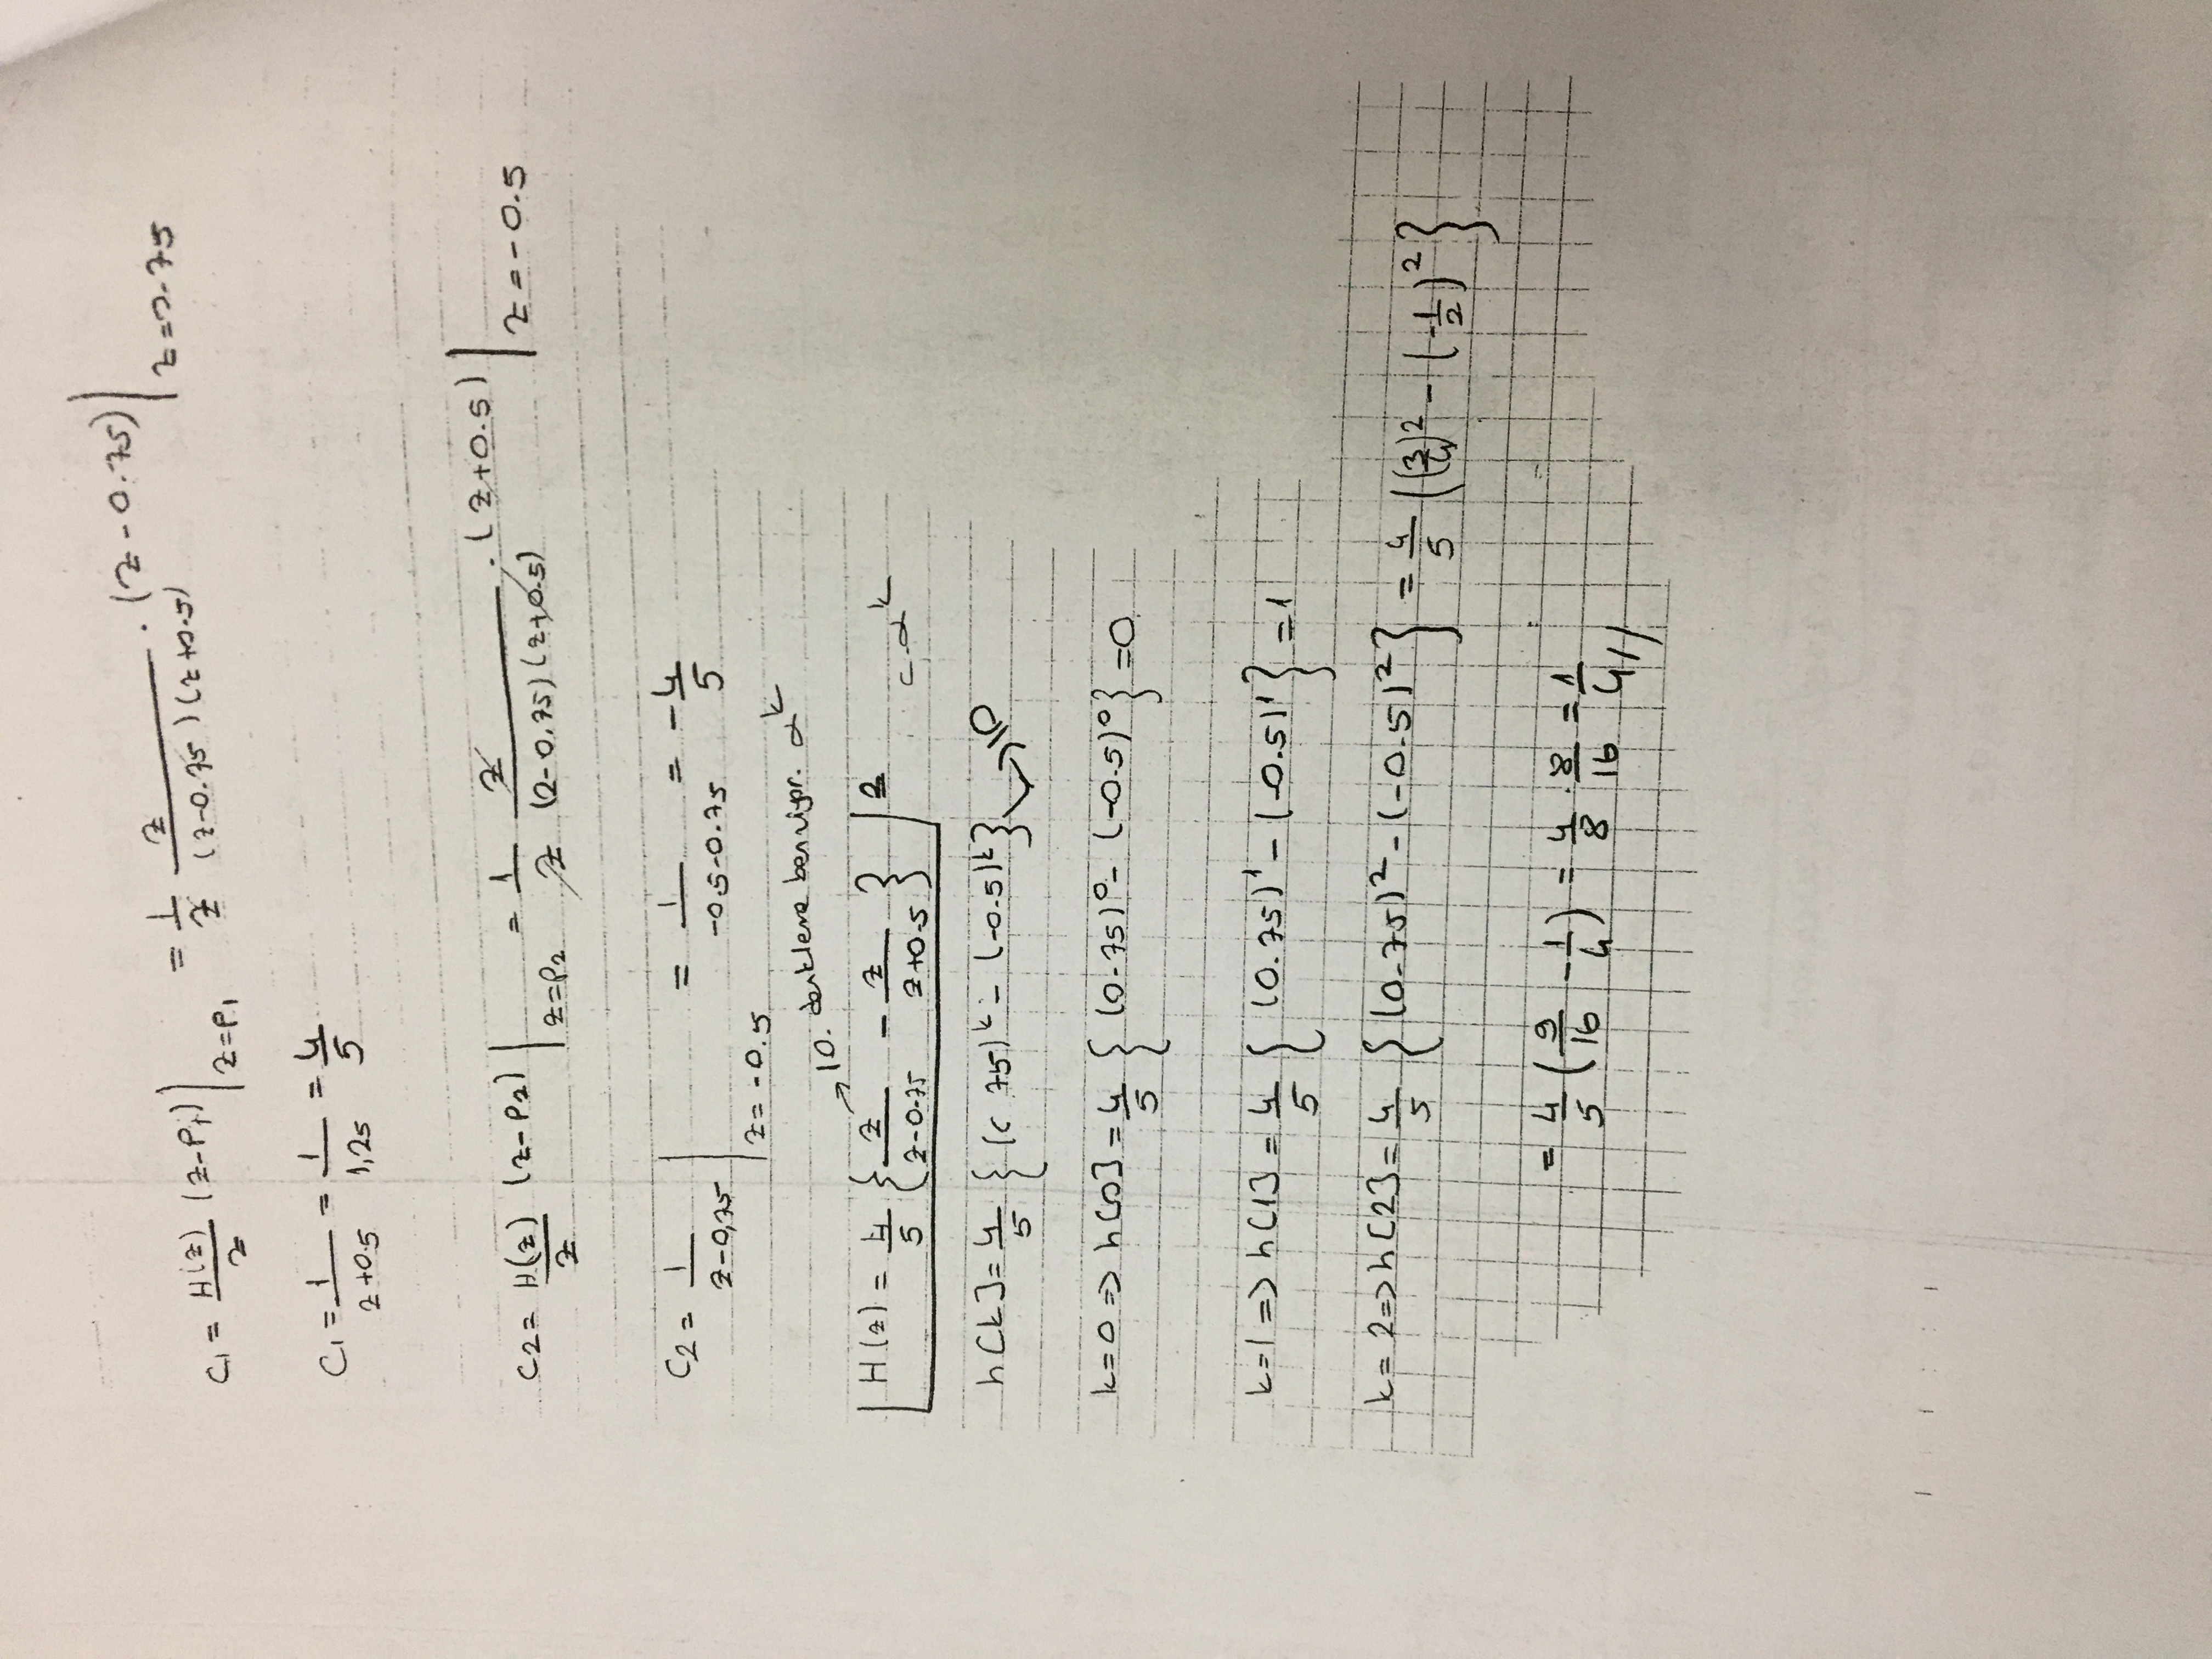 C₁ = H(z)/z (z-P₁) |z=P₁ = 1/z z/((z-0.75)(z+0.5)) . (z-0.75) |z=0.75
C₁ = 1/(z+0.5) = 1/1,25 = 4/5
C₂ = H(z)/z (z-P₂) |z=P₂ = 1/z z/((z-0.75)(z+0.5)) . (z+0.5) |z=-0.5
C₂ = 1/(z-0,75) |z=-0.5 = 1/(-0.5-0.75) = -4/5
→ 10. denkleme benziyor. α^k
H(z) = 4/5 {z/(z-0.75) - z/(z+0.5)} 2 c.α^k
h[k] = 4/5 {( 75)^k - (-0.5)^k} → 10
k=0 => h[0] = 4/5 {(0.75)^0 - (-0.5)^0} = 0
k=1 => h[1] = 4/5 {(0.75)^1 - (-0.5)^1} = 1
k=2 => h[2] = 4/5 {(0.75)^2 - (-0.5)^2} = 4/5 ((3/4)^2 - (-1/2)^2}
= 4/5 (9/16 - 1/4) = 4/8 . 8/16 = 1/4 //